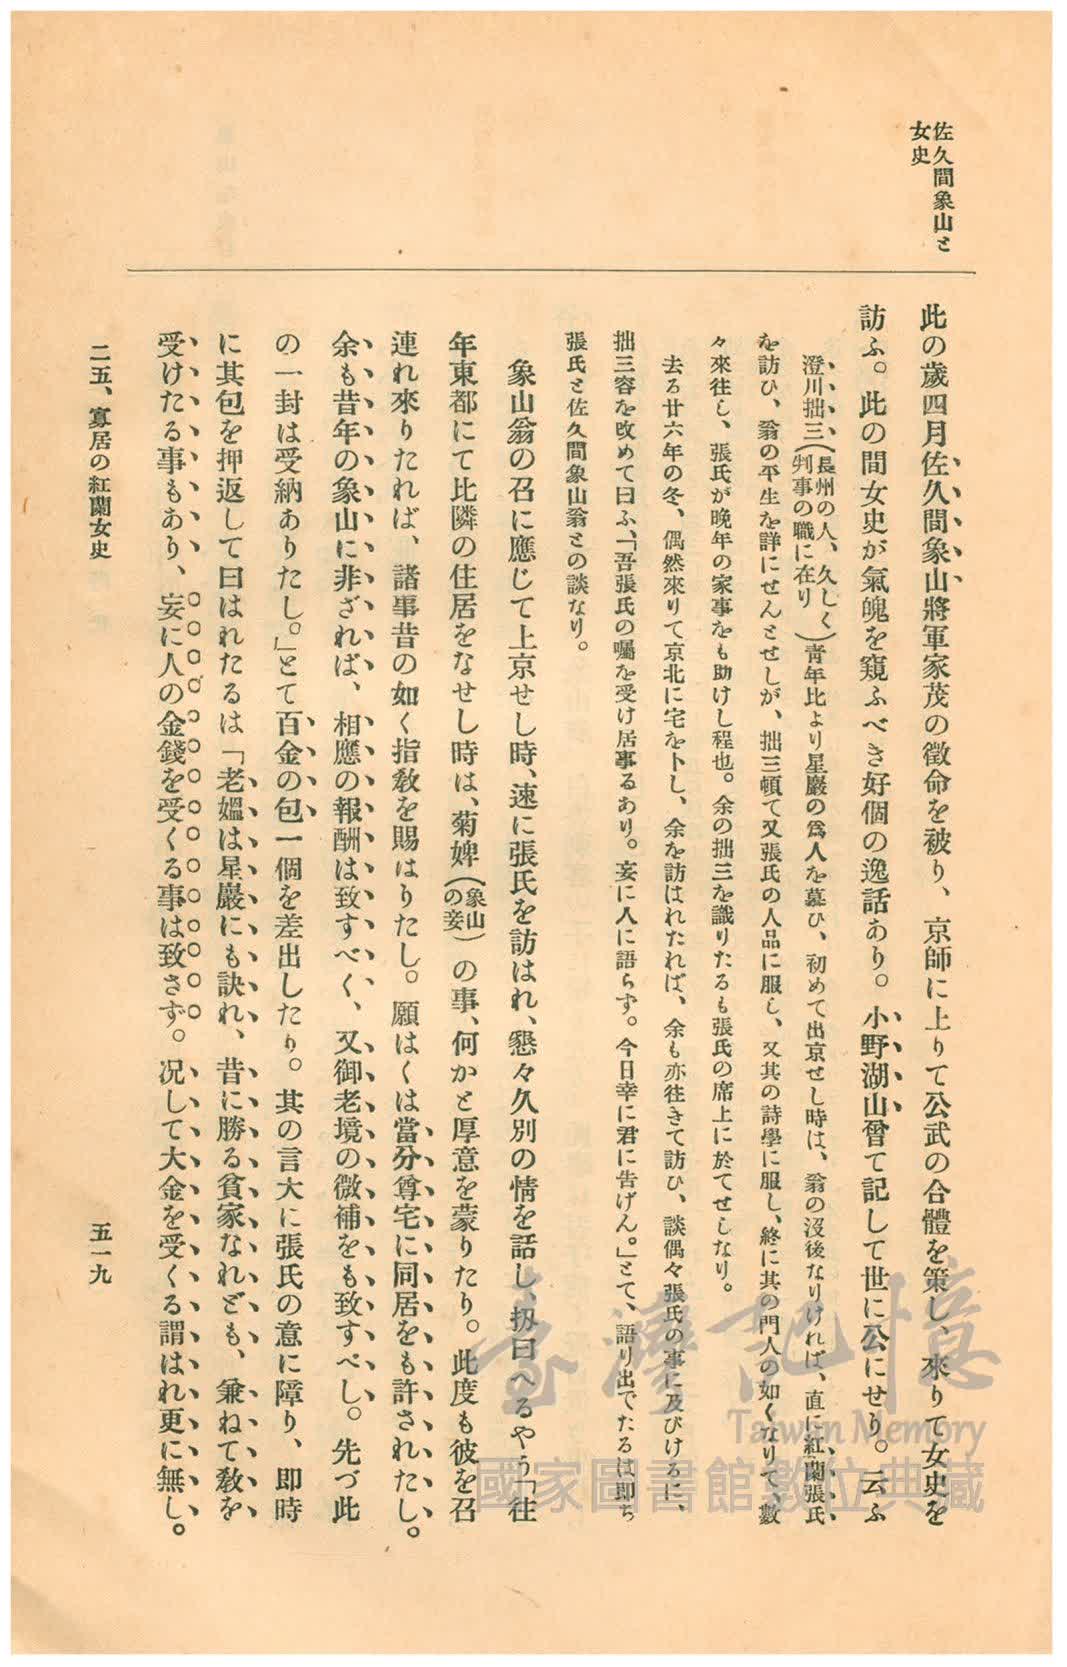 佐久間象山と
女史
此の歲四月佐久間象山將軍家茂の徵命を被り、京師に上りて公武の合體を策し、來りて女史を
訪ふ。此の間女史が氣魄を窺ふべき好個の逸話あり。小野湖山甞て記して世に公にせり。云ふ
澄川拙三(長州の人、久しく判事の職に在り)靑年比より星巖の爲人を慕ひ、初めて出京せし時は、翁の沒後なりければ、直に紅蘭張氏
を訪ひ、翁の平生を詳にせんとせしが、拙三頓て又張氏の人品に服し、又其の詩學に服し、終に其の門人の如くなりて、數
々來往し、張氏が晚年の家事をも助けし程也。余の拙三を識りたるも張氏の席上に於てせしなり。
去る廿六年の冬、偶然來りて京北に宅を卜し、余を訪はれたれば、余も亦往きて訪ひ、談偶々張氏の事に及びけるに、
拙三容を改めて曰ふ、「吾張氏の囑を受け居事るあり。妄に人に語らず。今日幸に君に告げん。」とて、語り出でたるは卽ち
張氏と佐久間象山翁との談なり。
象山翁の召に應じて上京せし時、速に張氏を訪はれ、懇々久別の情を話し、扨曰へるやう「往
年東都にて比隣の住居をなせし時は、菊婢(象山の妾)の事、何かと厚意を蒙りたり。此度も彼を召
連れ來りたれば、諸事昔の如く指敎を賜はりたし。願はくは當分尊宅に同居をも許されたし。
余も昔年の象山に非ざれば、相應の報酬は致すべく、又御老境の微補をも致すべし。先づ此
の一封は受納ありたし。」とて百金の包一個を差出したり。其の言大に張氏の意に障り、卽時
に其包を押返して曰はれたるは「老媼は星巖にも訣れ、昔に勝る貧家なれども、兼ねて敎を
受けたる事もあり、妄に人の金錢を受くる事は致さず。况して大金を受くる謂はれ更に無し。
二五、寡居の紅蘭女史
五一九
臺灣記憶
Taiwan Memory
國家圖書館數位典藏